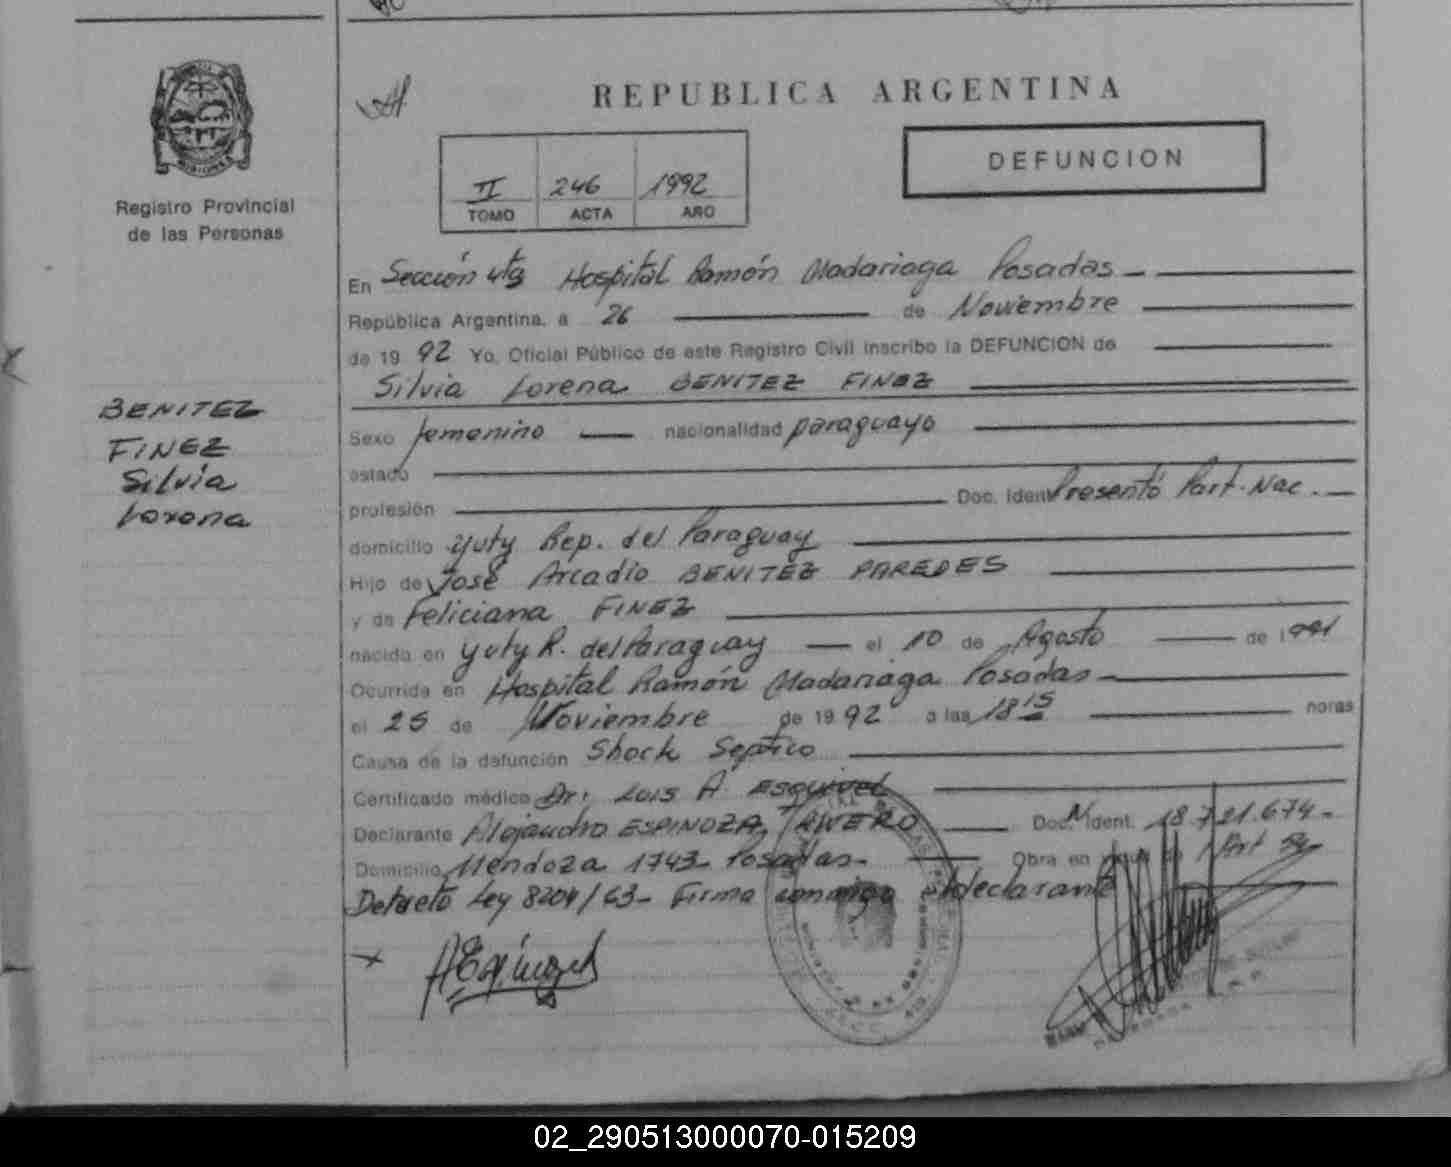 REPUBLICA ARGENTINA
DEFUNCION
II 246 1992
TOMO ACTA AÑO
Registro Provincial
de las Personas
BENITEZ
FINEZ
Silvia
Lorena
En Sección 4ta Hospital Ramón Madariaga Posadas
República Argentina, a 26 de Noviembre
de 1992 Yo, Oficial Público de este Registro Civil inscribo la DEFUNCION de
Silvia Lorena BENITEZ FINEZ
Sexo femenino nacionalidad paraguayo
estado
profesión Doc. Ident Presentó Part. Nac.
domicilio Yuty Rep. del Paraguay
Hijo de José Arcadio BENITEZ PAREDES
y de Feliciana FINEZ
nacida en Yuty R. del Paraguay el 10 de Agosto de 1991
Ocurrida en Hospital Ramón Madariaga Posadas
el 25 de Noviembre de 1992 a las 18 15 horas
Causa de la defunción Shock Septico
Certificado médico Dr. Luis A. Esquivel
Declarante Alejandro ESPINOZA Doc. Ident. 18.721.674
Domicilio Mendoza 1743 Posadas Obra en Art
Decreto Ley 8204/63 Firma conmigo el declarante
AEspinoza
02_290513000070-015209